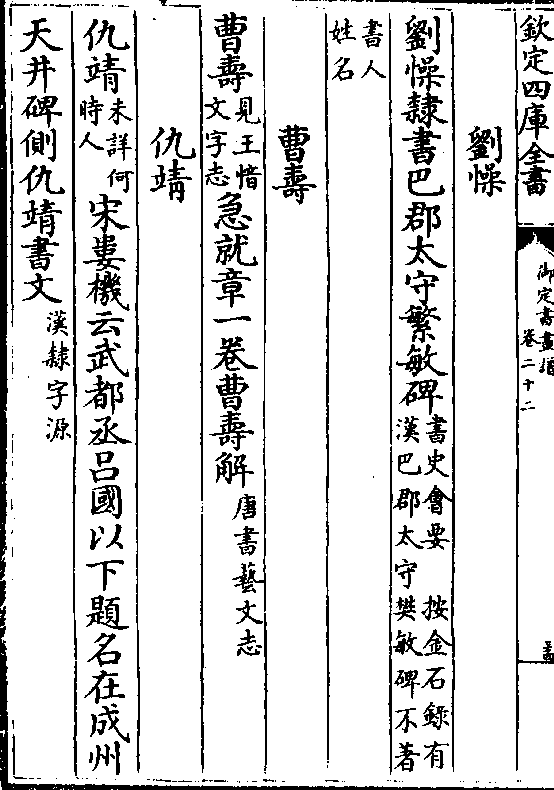 欽定四庫全書
御定書畫譜
卷二十二
劉懆
劉懆隸書巴郡太守繁敏碑書史會要 按金石錄有漢巴郡太守樊敏碑不著
書人姓名
曹壽
曹壽見王愔文字志急就章一卷曹壽解唐書藝文志
仇靖
仇靖未詳何時人宋婁機云武都丞吕國以下題名在成州
天井碑側仇靖書文漢隸字源